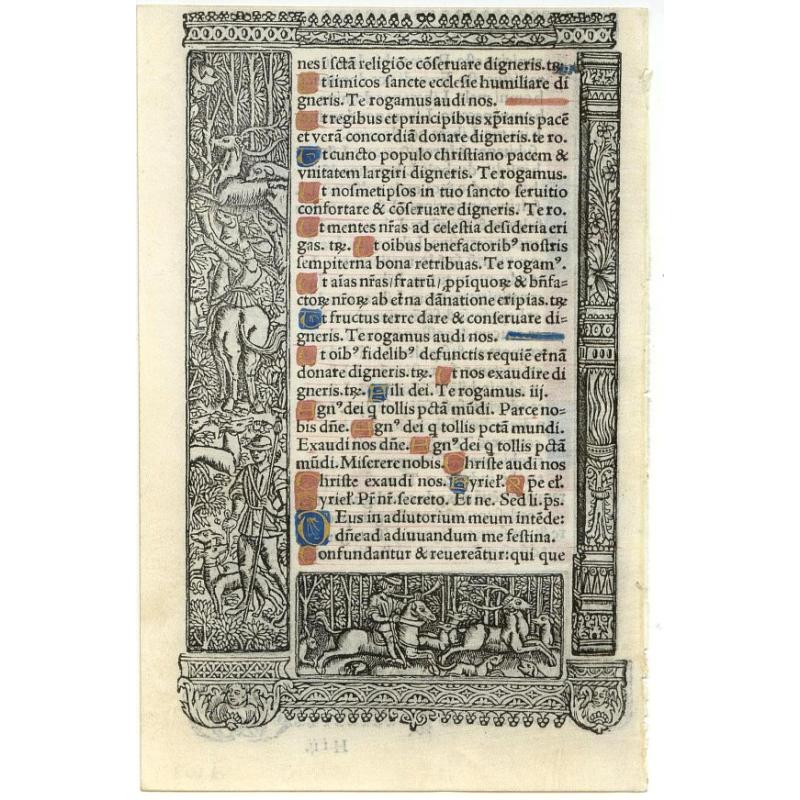 nes i sctā religiōe cōseruare digneris. tꝛ.
Ut inimicos sancte ecclesie humiliare di
gneris. Te rogamus audi nos.
Ut regibus et principibus xp̄ianis pacē
et verā concordiā donare digneris. te ro.
Ut cuncto populo christiano pacem &
vnitatem largiri digneris. Te rogamus.
Ut nosmetipsos in tuo sancto seruitio
confortare & cōseruare digneris. Te ro.
Ut mentes nr̄as ad celestia desideria eri
gas. tꝛ. Ut oibus benefactoribꝰ nostris
sempiterna bona retribuas. Te rogamꝰ.
Ut aīas nr̄as/ fratrū/ ꝓpiquoꝝ & bn̄fa-
ctoꝝ nr̄oꝝ ab etna dānatione eripias. tꝛ
Ut fructus terre dare & conseruare di=
gneris. Te rogamus audi nos.
Ut oibꝰ fidelibꝰ defunctis requiē etnā
donare digneris. tꝛ. Ut nos exaudire di
gneris. tꝛ. Fili dei. Te rogamus. iij.
Agnꝰ dei q tollis pctā mūdi. Parce no-
bis dn̄e. Agnꝰ dei q tollis pctā mundi.
Exaudi nos dn̄e. Agnꝰ dei q tollis pctā
mūdi. Miserere nobis. Christe audi nos
Christe exaudi nos. Kyrieł. Xp̄e eł.
Kyrieł. Pr̄ nr̄. secreto. Et ne. Sed li. p̄s.
DEus in adiutorium meum intēde:
dn̄e ad adiuuandum me festina.
Confundantur & reuereātur: qui que